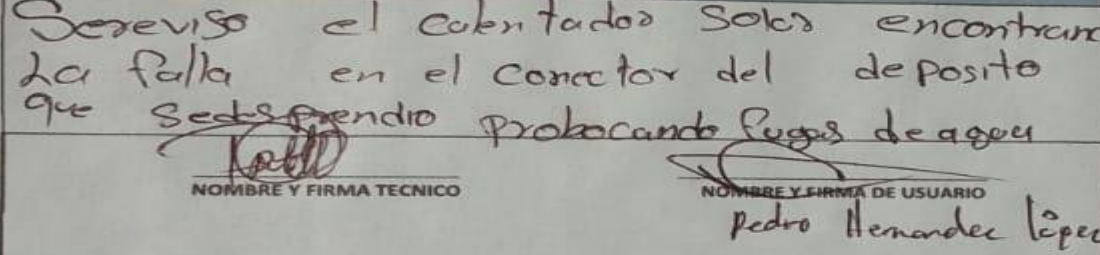 Sereviso el calentador Solar encontran
La falla en el conector del deposito
que Sedesprendio probocando fugas de agua
NOMBRE Y FIRMA TECNICO
NOMBRE Y FIRMA DE USUARIO
Pedro Hernandez López